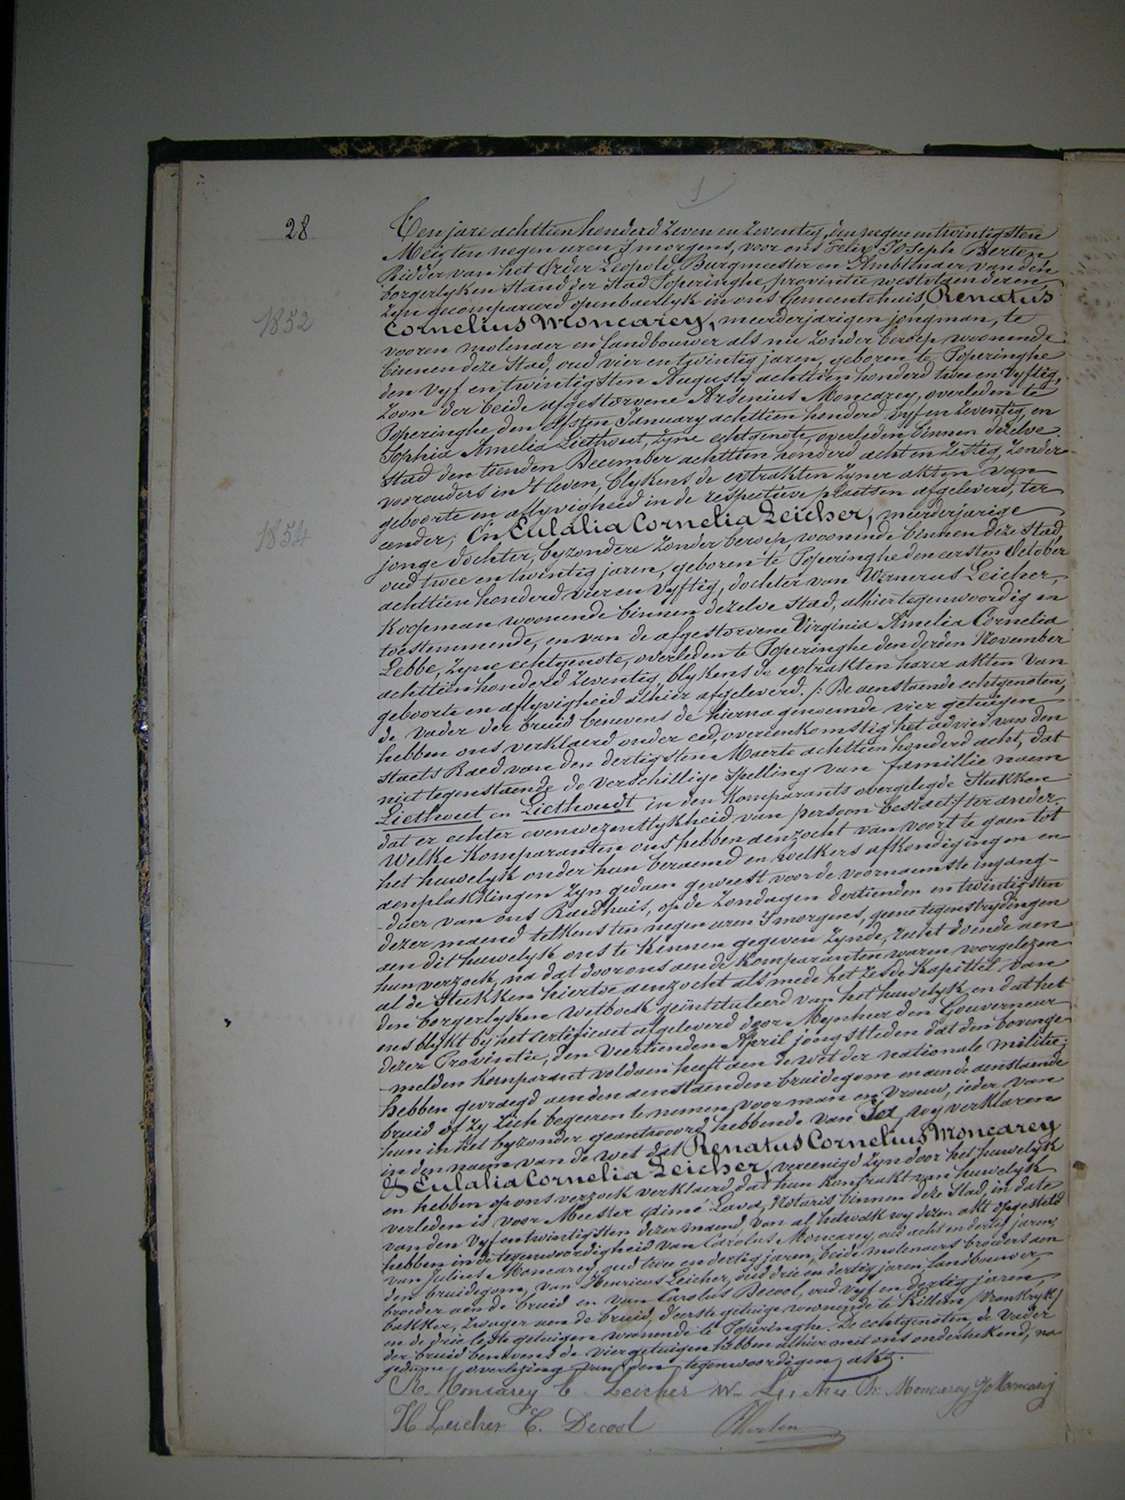 28
Ten jare achttien honderd zeven en zeventig, den negen en twintigsten
Mei, ten negen uren 's morgens, voor ons Felix Joseph Berten
Ridder van het Order Leopold, Burgmeester en Ambtenaer van den
borgerlyken Stand der Stad Poperinghe, provintie westvlaenderen,
zyn gecompareerd openbaerlyk in ons Gemeentehuis, Renatus
Cornelius Moncarey, meerderjarigen jongman, te
vooren molenaer en landbouwer als nu zonder beroep woonende
1852
binnen deze Stad, oud vier en twintig jaren, geboren te Poperinghe
den vyf en twintigsten Augusty achttien honderd twee en vyftig,
zoon der beide afgestorvene Arsenius Moncarey, overleden te
Poperinghe den January achttien honderd vyf en zeventig, en
Sophia Amelia Liethout, zyne echtgenote, overleden binnen dezelve
Stad den tienden December achttien honderd acht en zestig, zonder
voorouders in 't leven, blykens de extrakten zyner akten van
geboorte en aflyvigheid in de respectieve plaetsen afgeleverd, ter
eender; En Eulalia Cornelia Leicher, meerderjarige
1854
jonge dochter, byzondere zonder beroep, woonende binnen deze Stad,
oud twee en twintig jaren, geboren te Poperinghe den eersten October
achttien honderd vier en vyftig, dochter van Wernerus Leicher,
Koopman woonende binnen dezelve Stad, alhier tegenwoordig en
toestemmende, en van de afgestorvene Virginia Amelia Cornelia
Lebbe, zyne echtgenote, overleden te Poperinghe den derden November
achttien honderd zeventig, blykens de extrakten harer akten van
geboorte en aflyvigheid alhier afgeleverd. /: De aenstaende echtgenoten,
de vader der bruid benevens de hierna genoemde vier getuigen
hebben ons verklaerd onder eed, overeenkomstig het advies van den
Staets Raed van den dertigsten Maerte achttien honderd acht, dat
niet tegenstaende de verschillige spelling van famillie naem
Liethout en Liethoudt in den Komparants overgelegde Stukken
dat er echter evenwezentlykheid van persoon bestaet ter ander.
Welke Komparanten ons hebben aenzocht van voort te gaen tot
het huwelyk onder hun beraemd en welkers afkondigingen en
aenplakkingen zyn gedaen geweest voor de voornaemste ingang-
-deur van ons Raedhuis, op de zondagen dertienden en twintigsten
dezer maend telkens ten negen uren 's morgens, geene tegenstrydingen
aen dit huwelyk ons te kennen gegeven zynde, recht doende aen
hun verzoek, na dat door ons aen de Komparanten waren voorgelezen
al de Stukken hiertoe aenzocht als mede het zesde Kapittel van
den borgerlyken Wetboek geïntituleerd van het huwelyk, en dat het
ons blykt by het certificaet afgeleverd door Mynheer den Gouverneur
dezer Provintie, den veertienden April jongstleden dat den bovenge-
-melden Komparant voldaen heeft aen de wet der nationale militie;
hebben gevraegd aen den aenstaenden bruidegom en aen de aenstaende
bruid of zy zich begeeren te nemen voor man en vrouw, ieder van
hun in het byzonder geantwoord hebbende van Ja, wy verklaren
in den naem van de wet dat Renatus Cornelius Moncarey
& Eulalia Cornelia Leicher, vereenigd zyn door het huwelyk
en hebben op ons verzoek verklaerd, dat hun kontrakt van huwelyk
verleden is voor Meester Aimé Lava, Notaris binnen deze Stad, in date
van den vyf en twintigsten dezer maend, van al hetwelk wy dezen akt opgesteld
hebben in de tegenwoordigheid van Carolus Moncarey, oud acht en dertig jaren,
van Julius Moncarey, oud twee en dertig jaren, beide molenaers broeders aen
den bruidegom, van Henricus Leicher, oud drie en dertig jaren, landbouwer,
broeder aen de bruid en van Carolus Decool, oud vyf en dertig jaren,
bakker, zwager aen de bruid, d'eerste getuige woonende te Killem /vrankryk/
en de drie leste getuigen woonende te Poperinghe. De echtgenoten, de vader
der bruid benevens de vier getuigen hebben alhier met ons onderteekend, na
gedane overlezing van den tegenwoordigen akt.
R. Moncarey E. Leicher W. Leicher Ch. Moncarey J Moncarey
H Leicher C. Decool Berten